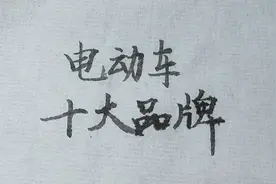 电动车
十大品牌